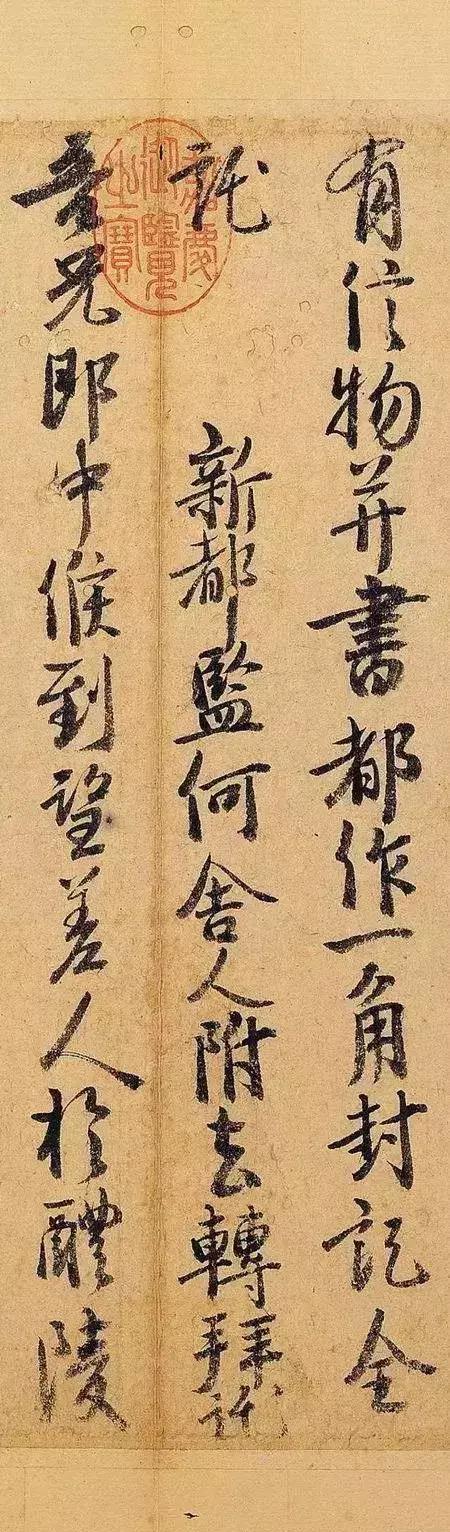 有信物并書都作一角封記全
託 新都監何舍人附去轉拜託
吾兄郎中候到望差人於醴陵
嘉慶
御覽
之寶